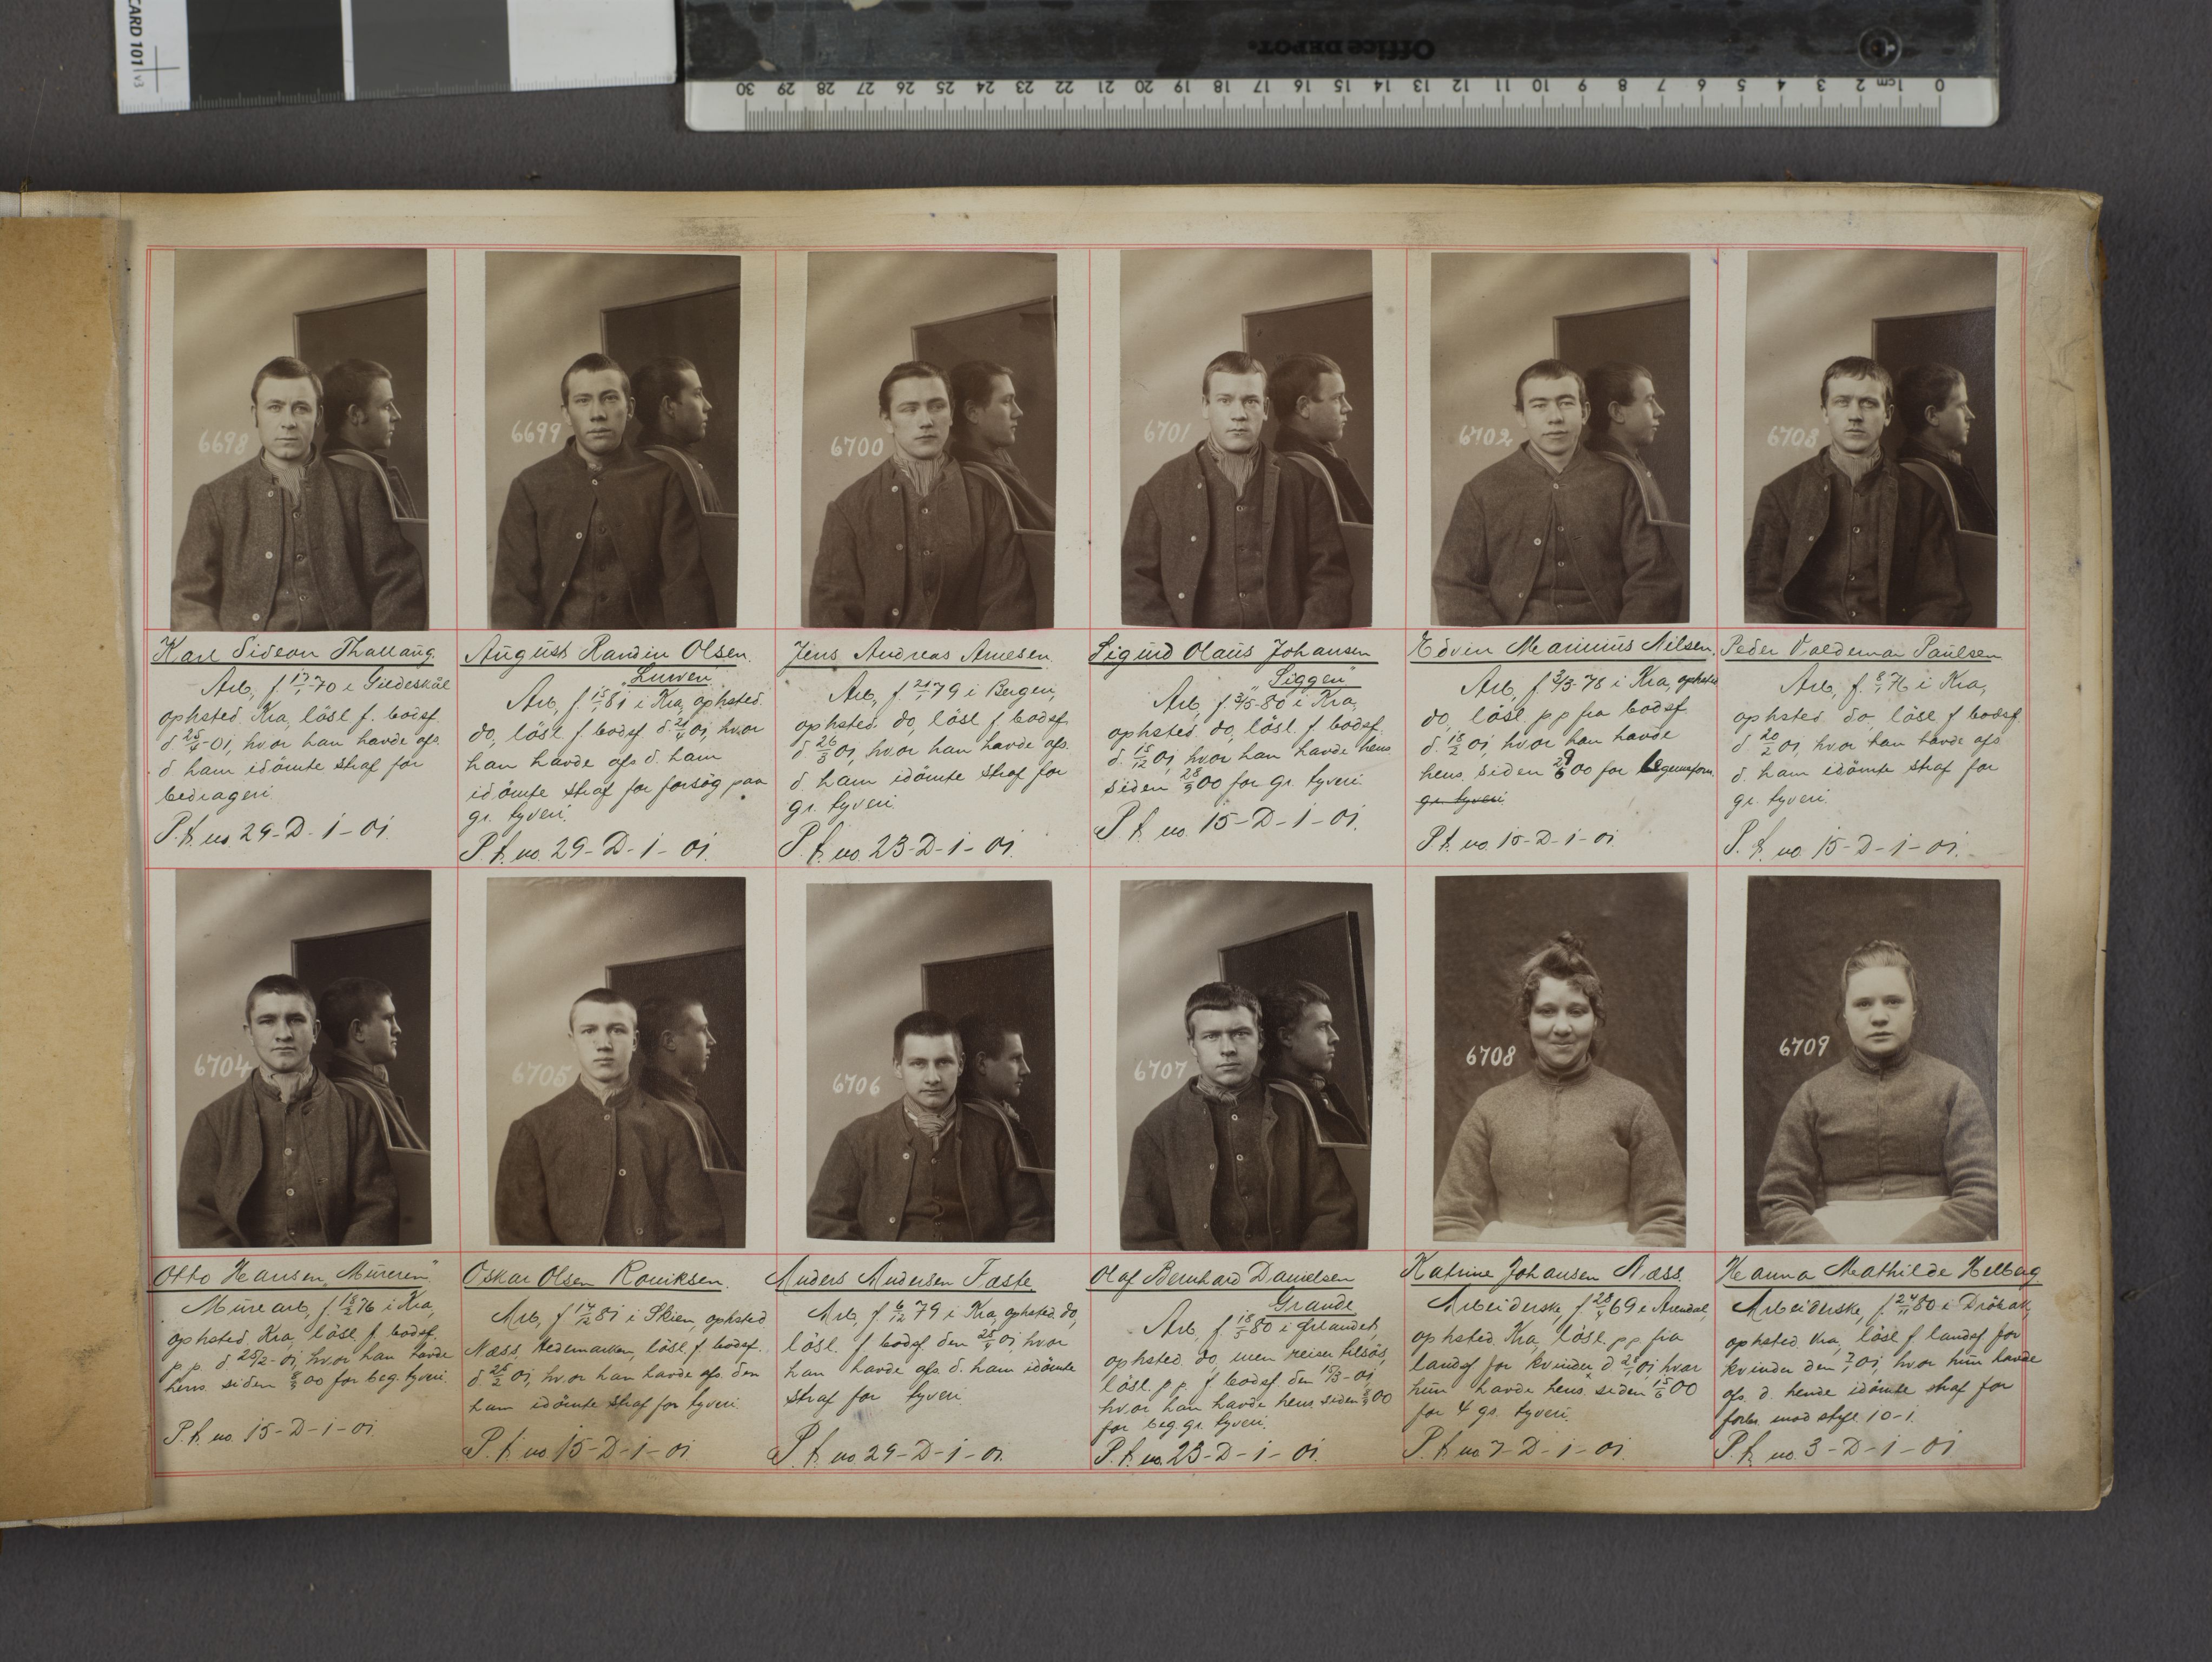 CARD 101 v3
Office DEPOT.
0 1cm 2 3 4 5 6 7 8 9 10 11 12 13 14 15 16 17 18 19 20 21 22 23 24 25 26 27 28 29 30
6698
6699
6700
6701
6702
6703
Karl Gideon Thallaug.
Arb, f. 17/1-70 i Gildeskål
ophsted. Kra, løsl f. bodsf.
d 25/4-01, hvor han havde afs.
d ham idømte straf for
bedrageri.
P.f. no 29-D-1-01.
August Randin Olsen.
"Luwen"
Arb, f. 15/1 81 i Kra, ophsted.
do, løsl f bodsf d. 24/4 01, hvor
han havde afs d. ham
idømte straf for forsøg paa
gr. tyveri.
P.f. no. 29-D-1-01.
Jens Andreas Arnesen.
Arb, f 21/1 79 i Bergen,
ophsted. do, løsl f bodsf.
d 26/3 01, hvor han havde afs.
d. ham idømte straf for
gr. tyveri.
P.f. no 23-D-1-01.
Sigurd Olaus Johansen
"Siggen"
Arb, f. 3/5-80 i Kra,
ophsted. do, løsl f. bodsf.
d. 15/12 01, hvor han havde hens.
siden 28/9 00 for gr. tyveri.
P.f. no. 15-D-1-01.
Edvin Marinius Nilsen.
Arb, f 3/3-78 i Kra, ophsted
do, løsl. p p fra bodsf.
d. 18/2 01, hvor han havde
hens. siden 29/6 00 for legemsforn.
gr. tyveri
P f. no 15-D-1-01.
Peder Valdemar Paulsen
Arb, f. 8/1 76 i Kra,
ophsted do, løsl f bodsf.
d 20/2 01, hvor han havde afs
d. ham idømte straf for
gr. tyveri.
P.f. no 15-D-1-01.
6704
6705
6706
6707
6708
6709
Otto Hansen "Mureren"
Murearb, f. 18/2 76 i Kra,
ophsted Kra, løsl f. bodsf.
p p. d 25/2-01, hvor han havde
hens. siden 8/9 00 for beg. tyveri.
P.f. no. 15-D-1-01
Oskar Olsen Roniksen.
Arb, f 17/12 81 i Skien, ophsted
Næss Hedemarken, løsl f. bodsf.
d. 25/2 01, hvor han havde afs. den
ham idømte straf for tyveri.
P.f. no 15-D-1-01
Anders Andersen Faste
Arb, f 6/12 79 i Kra, ophsted. do,
løsl. f bodsf den 25/4 01, hvor
han havde afs. d. ham idømte
straf for tyveri.
P.f. no 29-D-1-01.
Olaf Bernhard Danielsen
Grande
Arb, f. 18/5 80 i Ørlandet,
ophsted. do, men reiser tilsøs,
løsl. p p. f bodsf. den 15/3-01,
hvor han havde hens. siden 8/9 00
for beg. gr. tyveri.
P.f. no. 23-D-1-01.
Katrine Johansen Næss
Arbeiderske, f 28/4 69 i Arendal,
ophsted Kra, løsl. p p. fra
landsf for kvinder d 28/1 01, hvor
hun havde hens. siden 15/6 00
for 4 gs. tyveri.
P.f. no 7-D-1-01.
Hanna Mathilde Helberg
Arbeiderske, f. 24/11 80 i Drøbak,
ophsted Kra, løsl f landsf for
kvinder den 7/1 01, hvor hun havde
afs. d. hende idømte straf for
forbr. mod strfl. 10-1.
P.f. no. 3-D-1-01